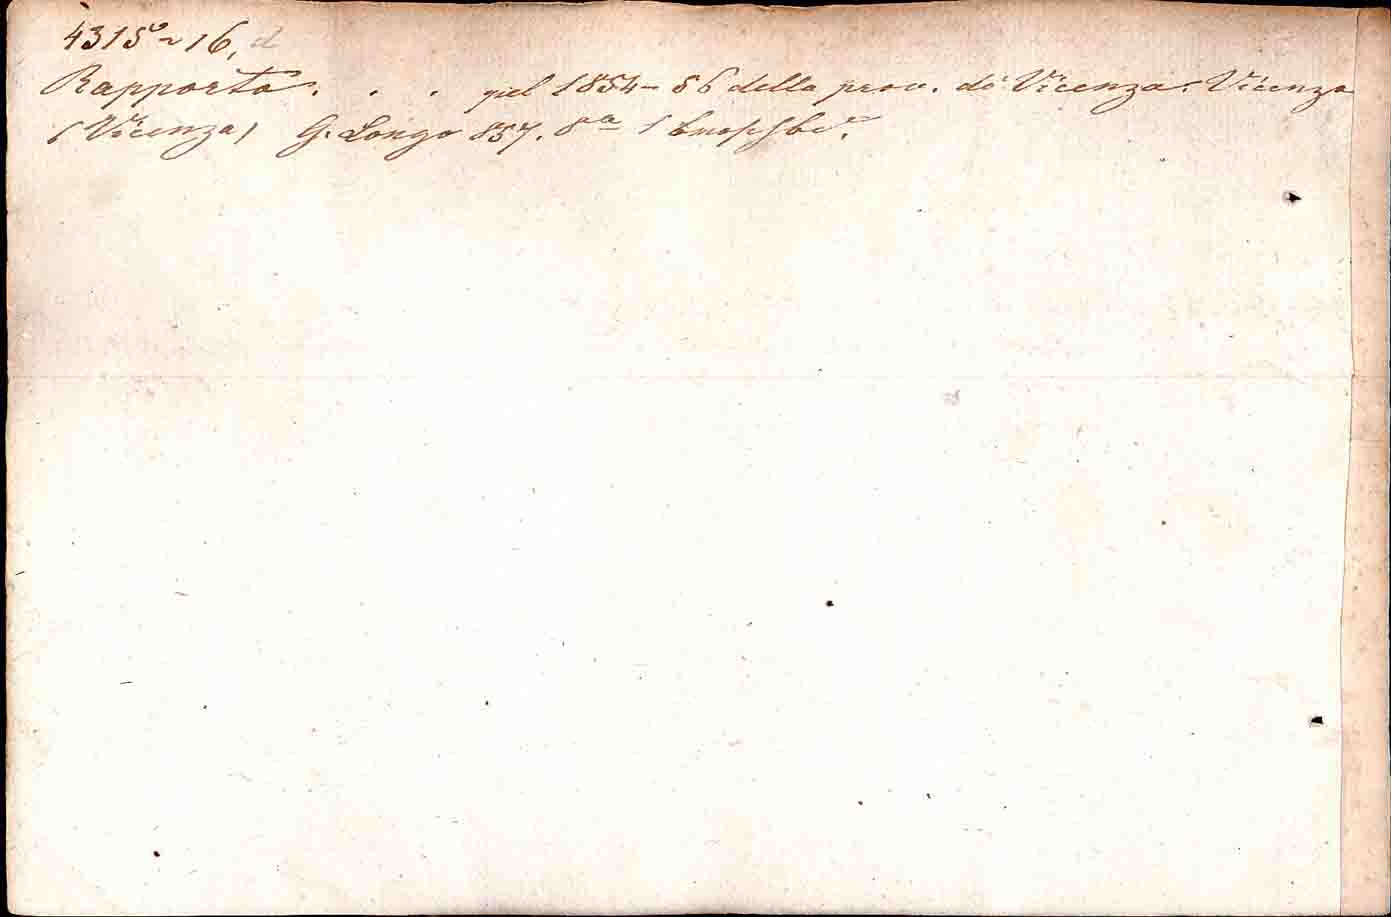 4315° ~ 16, d
Rapporto . . . pel 1854-56 della prov. di Vicenza. Vicenza
(Vicenza) G. Longo 857. 8a 1